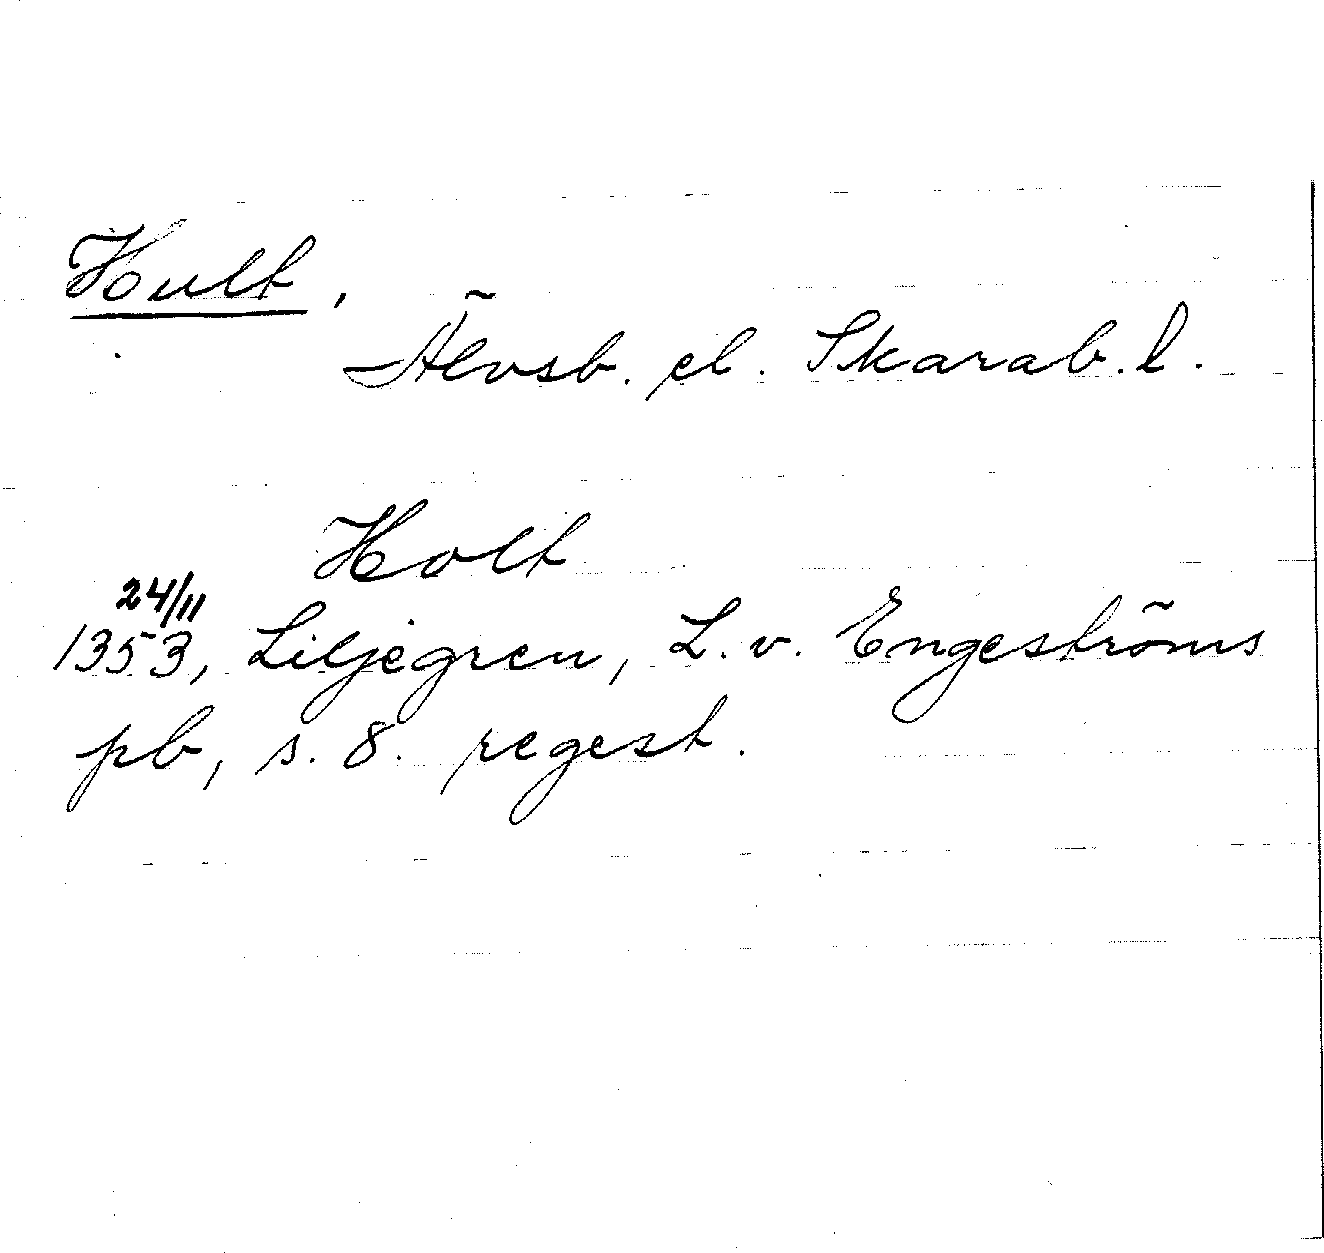 Hult,
Älvsb. el. Skarab. l.
Holt
24/11
1353, Liljegren, L. v. Engeströms
pb, s. 8. regest.